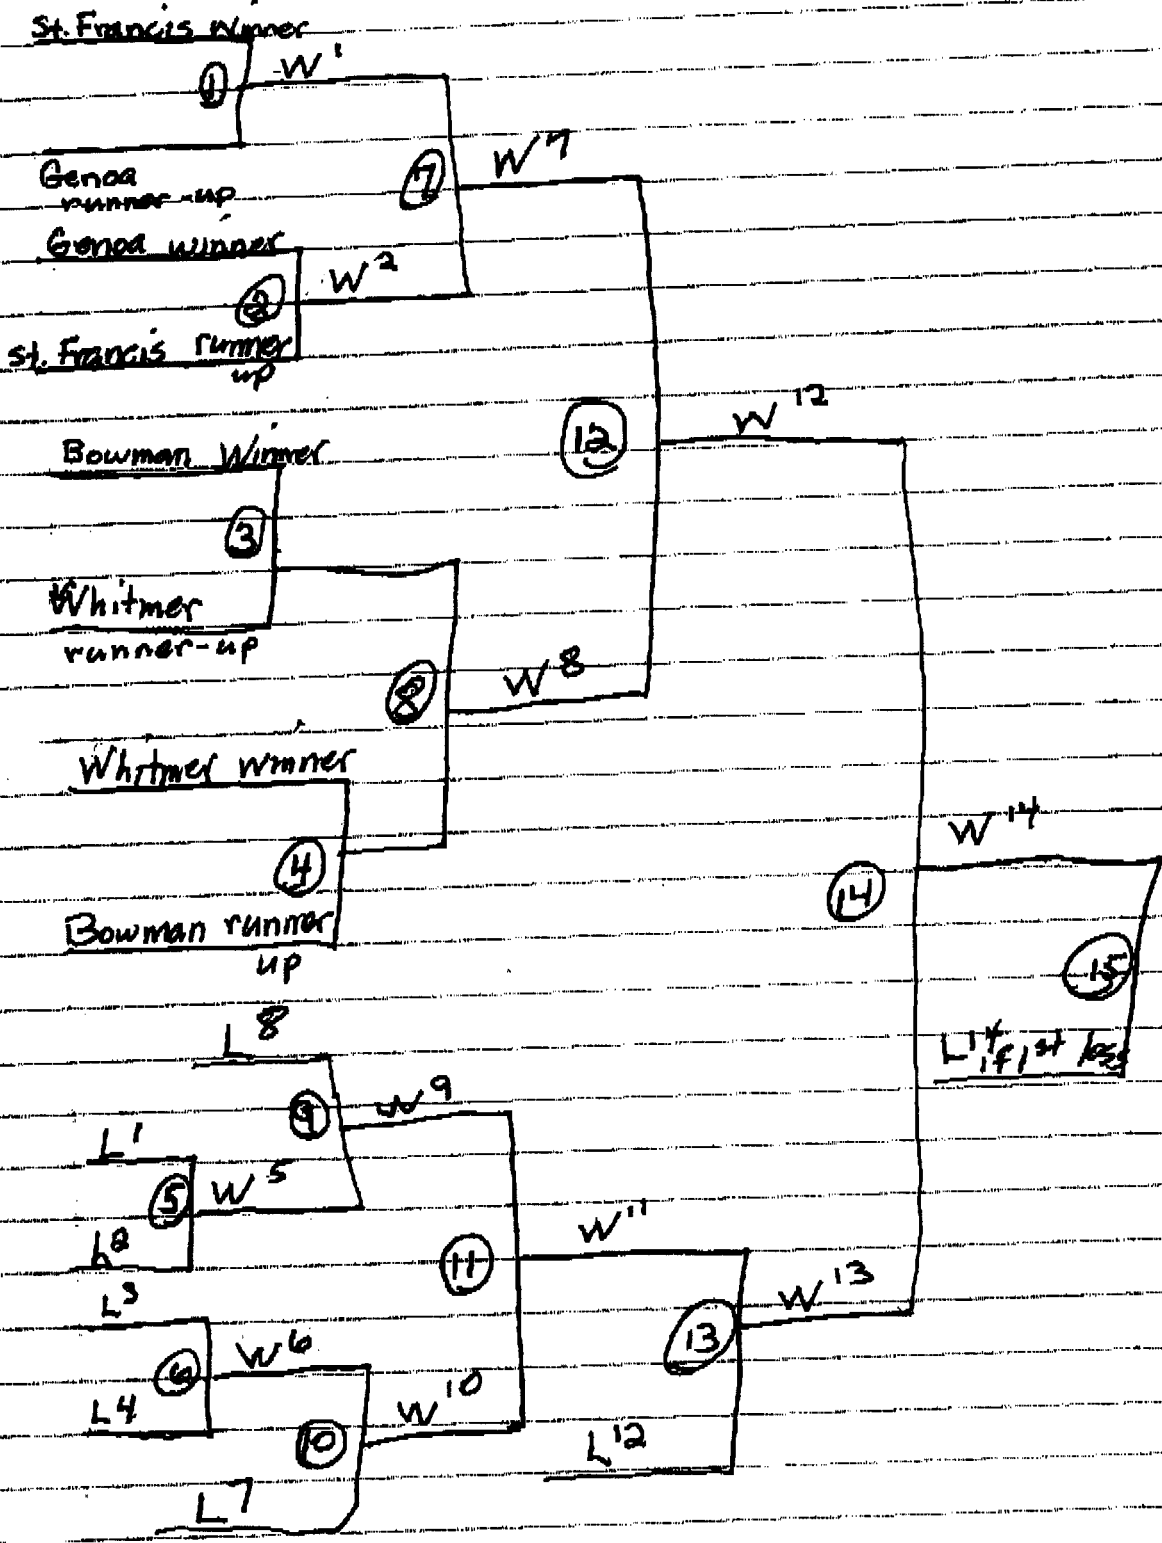 St. Francis Winner
1
W1
Genoa
runner-up
7
W7
Genoa winner
2
W2
St. Francis runner
up
12
W12
Bowman Winner
3
Whitmer
runner-up
8
W8
Whitmer winner
4
Bowman runner
up
14
W14
15
L14 if 1st loss
L8
9
W9
L1
5
W5
L2
11
W11
L3
6
W6
L4
10
W10
13
W13
L12
L7